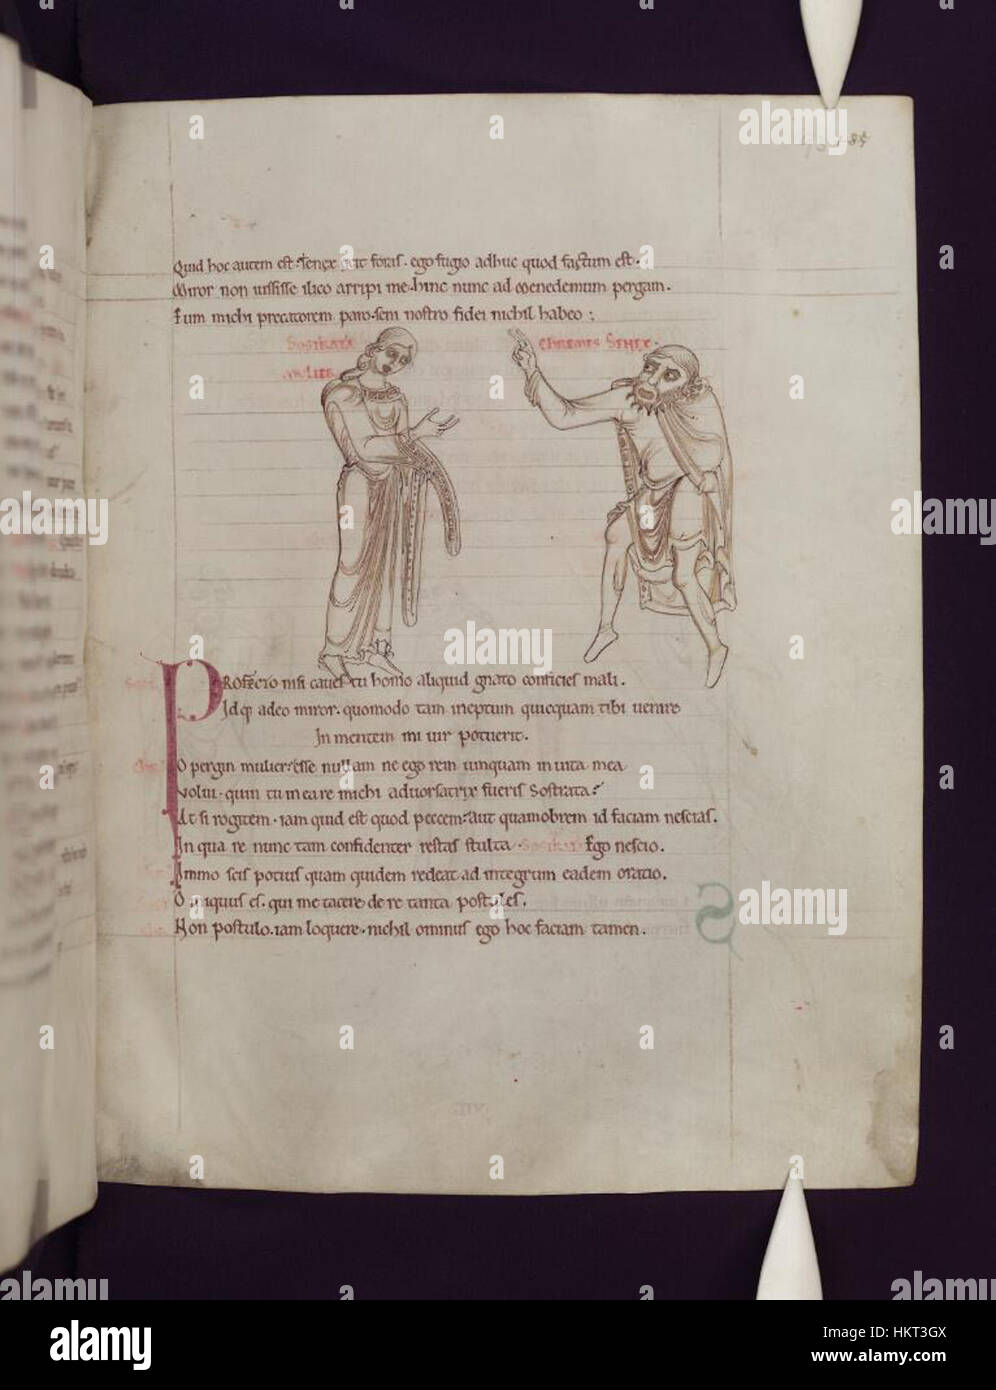 Quid hoc autem est. Senex exit foras. ego fugio adhuc quod factum est.
Miror non iussisse ilico arripi me. hinc nunc ad Menedemum pergam.
Eum michi precatorem paro. seni nostro fidei nichil habeo :
SOSTRATA CHREMES SENEX.
MULIER
PROFECTO nisi caves tu homo aliquid gnato conficies mali.
Idq adeo miror. quomodo tam ineptum quicquam tibi venire
In mentem mi vir potuerit.
O pergin mulier esse nullam ne ego rem umquam in vita mea
Volui. quin tu mea re michi adversatrix fueris Sostrata?
At si rogitem. iam quid est quod peccem. aut quamobrem id faciam nescias.
In qua re nunc tam confidenter restas stulta. Sostrat. Ego nescio.
Immo scis potius quam quidem redeat ad integrum eadem oratio.
O iniquus es. qui me tacere de re tanta postules.
Non postulo. iam loquere. nichil ominus ego hoc faciam tamen.
85
alamy
alamy
alamy
alamy
alamy
alamy
Image ID: HKT3GX
www.alamy.com